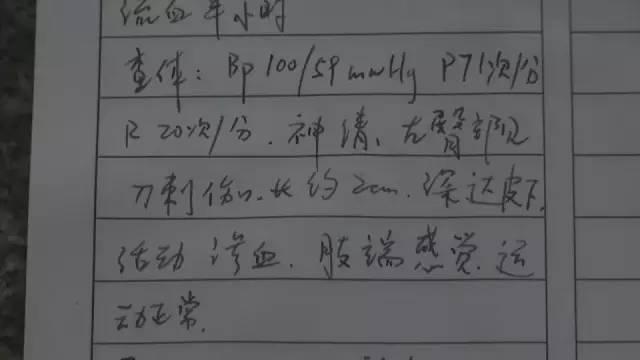 流血半小时
查体：Bp 100/59mmHg P71次/分
R 20次/分．神清、左臀部见
刀刺伤口．长约2cm．深达皮下．
活动渗血．肢端感觉．运
动正常．